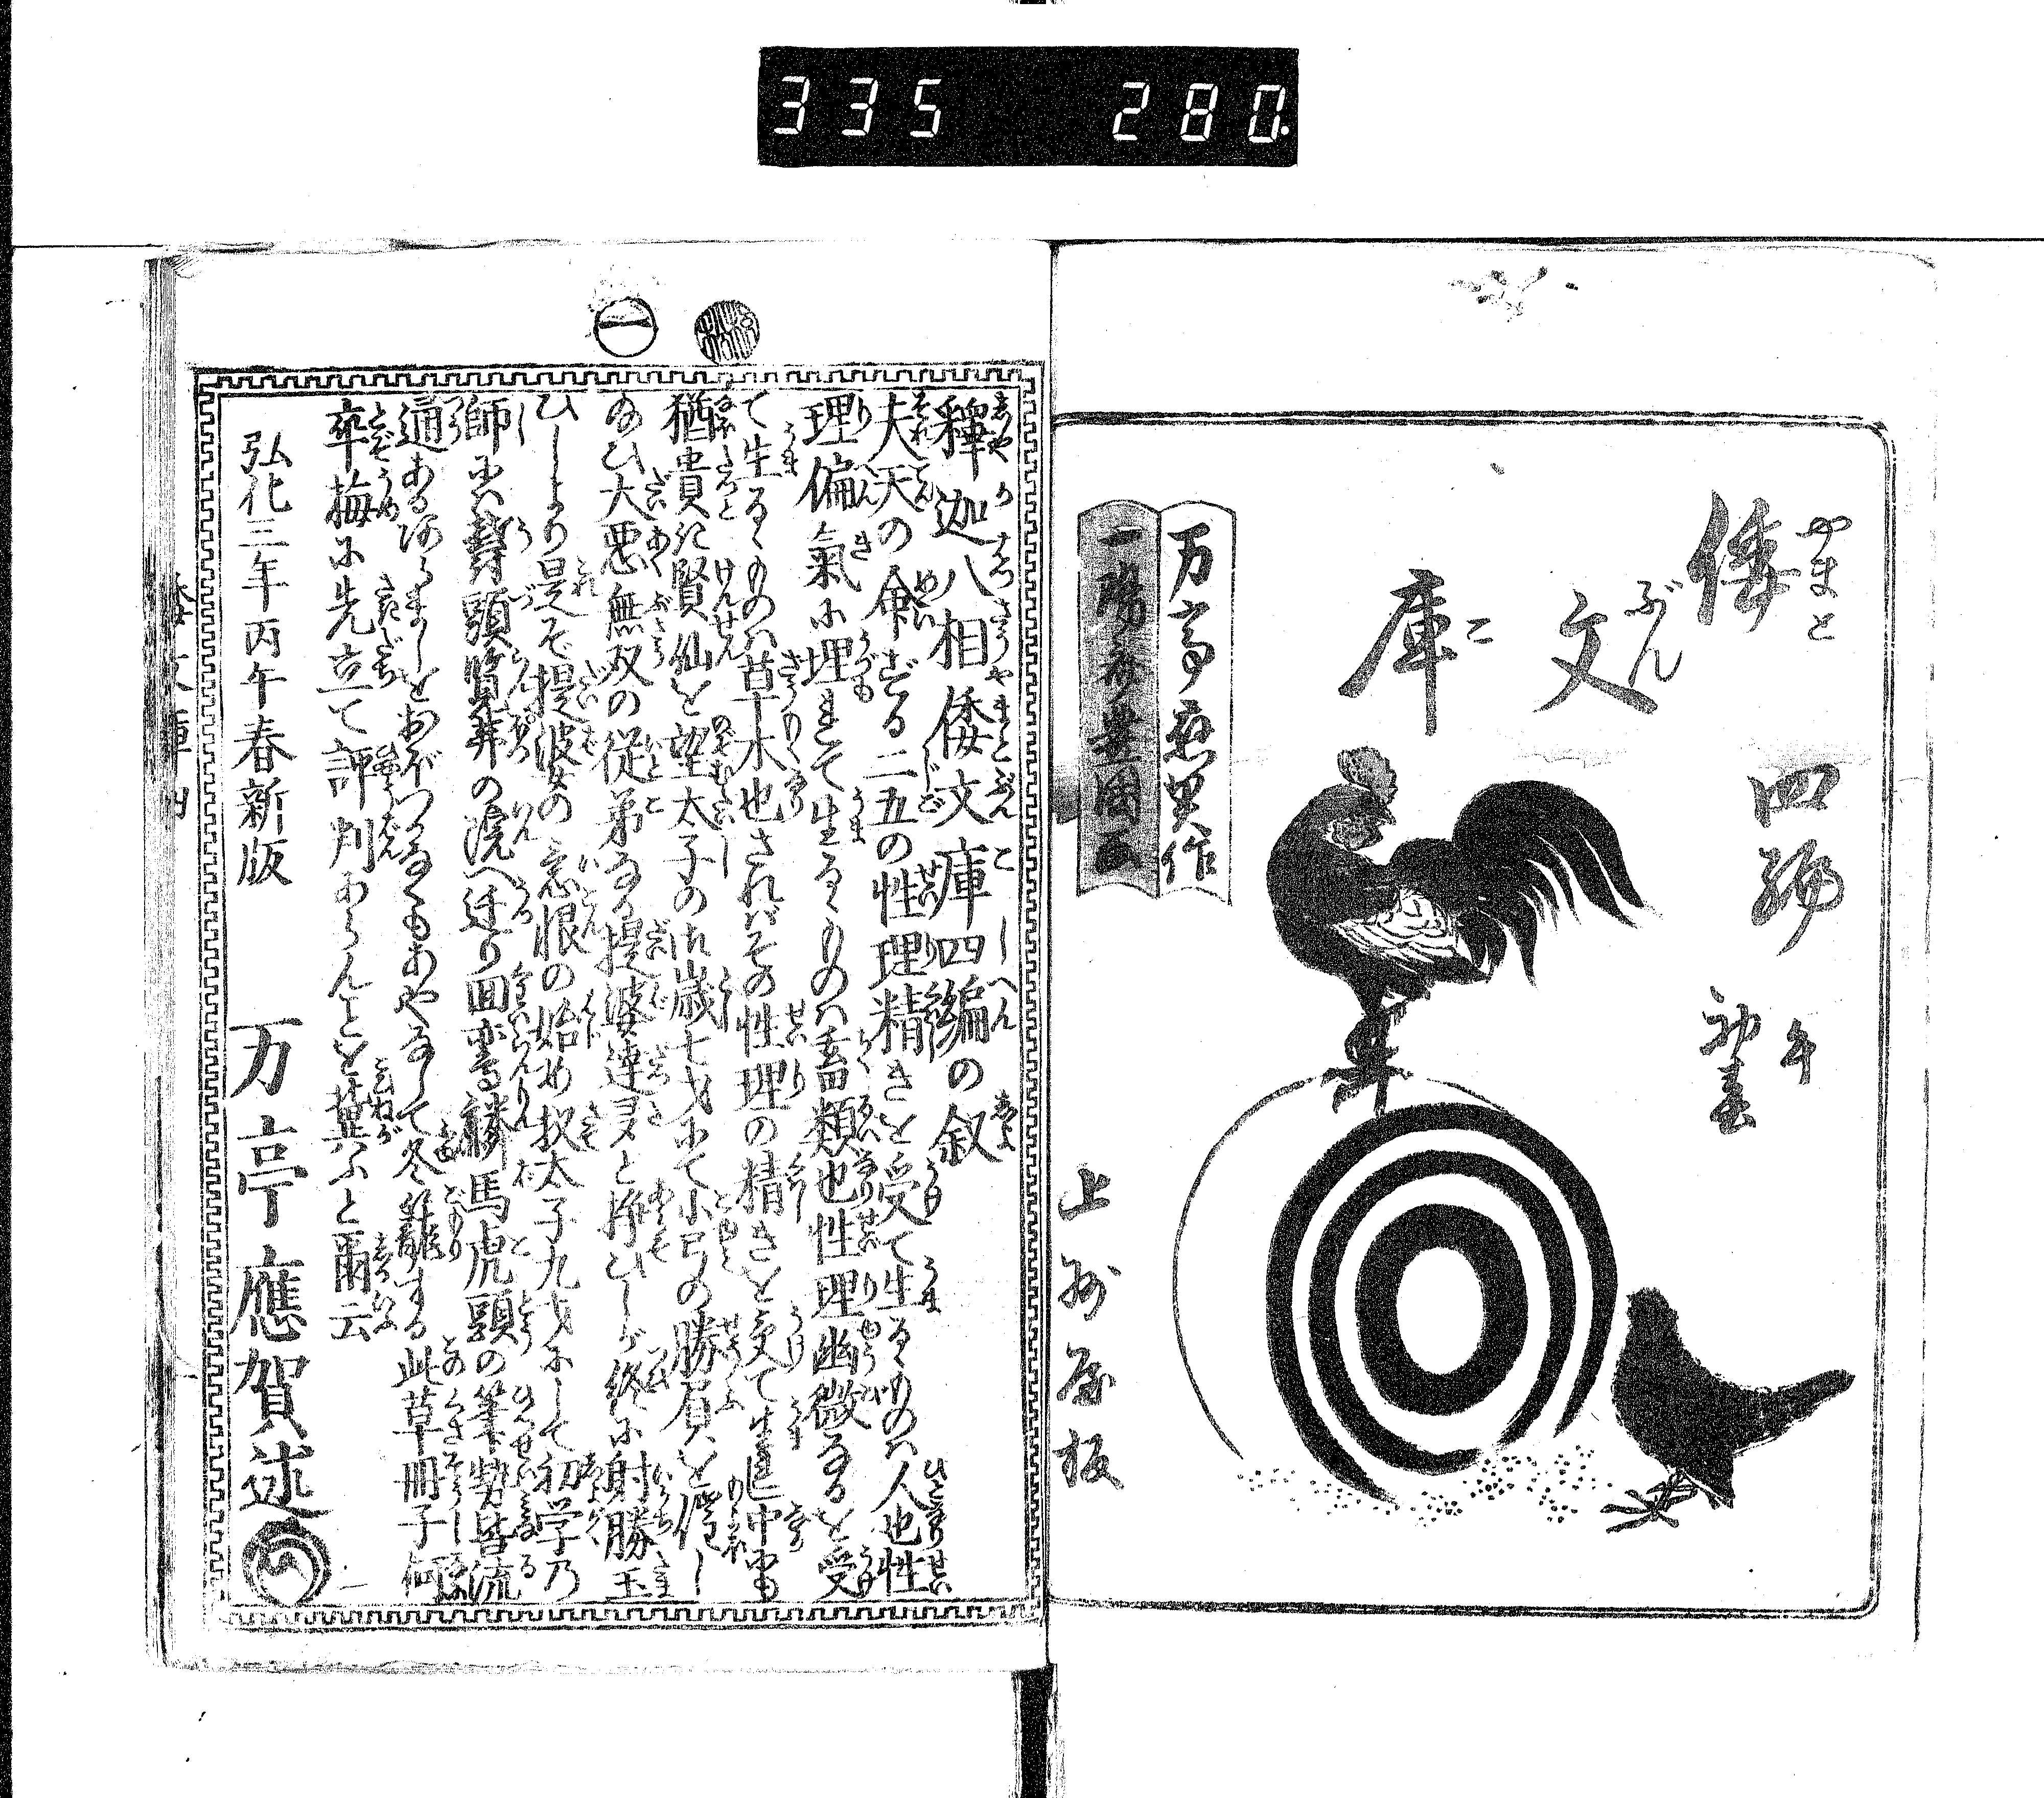 335 280
倭文庫
やまと
ぶん
こ
四編
午
初春
万亭應賀作
一陽齋豊國画
上州屋板
釋迦八相倭文庫四編の叙
夫天の命ずる二五の性理精きを受て生るゝものハ人也性
理偏氣に埋れて生るゝものハ畜類也性理幽微なるを受
て生るゝものハ草木也されバその性理の精きを受て生れし中當
猶貴き賢仙を望太子の御歳七才にて小弓の勝負を催し
給ひ大悪無双の従弟なる提婆達多と挣ひしが終に射勝玉
ひしより是ぞ提婆の意恨の始め扨太子九才にして初学乃
師にハ聾頭賢葬の流へ迂り囬鸞麟馬虎頭の筆勢皆流
通ある
あやなして冬籠する此草冊子何
卒梅に先立て評判あらんことを冀ふと爾云
弘化三年丙午春新版
万亭應賀述